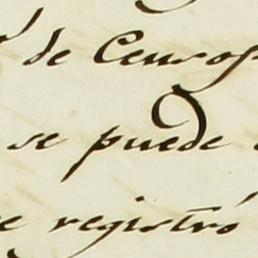 de Censos
se puede
registró